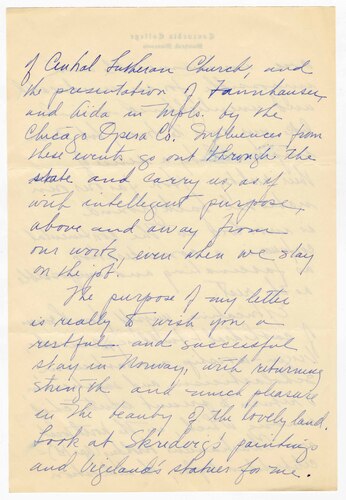 of Central Lutheran Church, and
the presentation of Tannhauser,
and Aida in Mpls. by the
Chicago Opera Co. Influences from
these events go out through the
state and carry us, as if
with intelligent purpose,
above and away from
our work, even when we stay
on the job.
The purpose of my letter
is really to wish you a
restful and successful
stay in Norway, with returning
strength and much pleasure
in the beauty of the lovely land.
Look at Skredsvig's paintings
and Vigeland's statues for me.